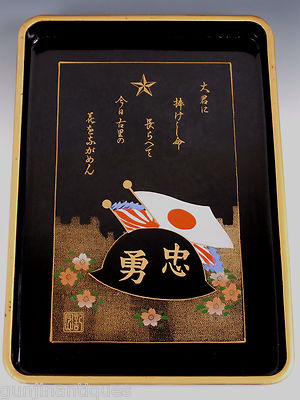 大君に
捧げし命
長らへて
今日古里の
花をながめん
忠勇
gunjinantiques